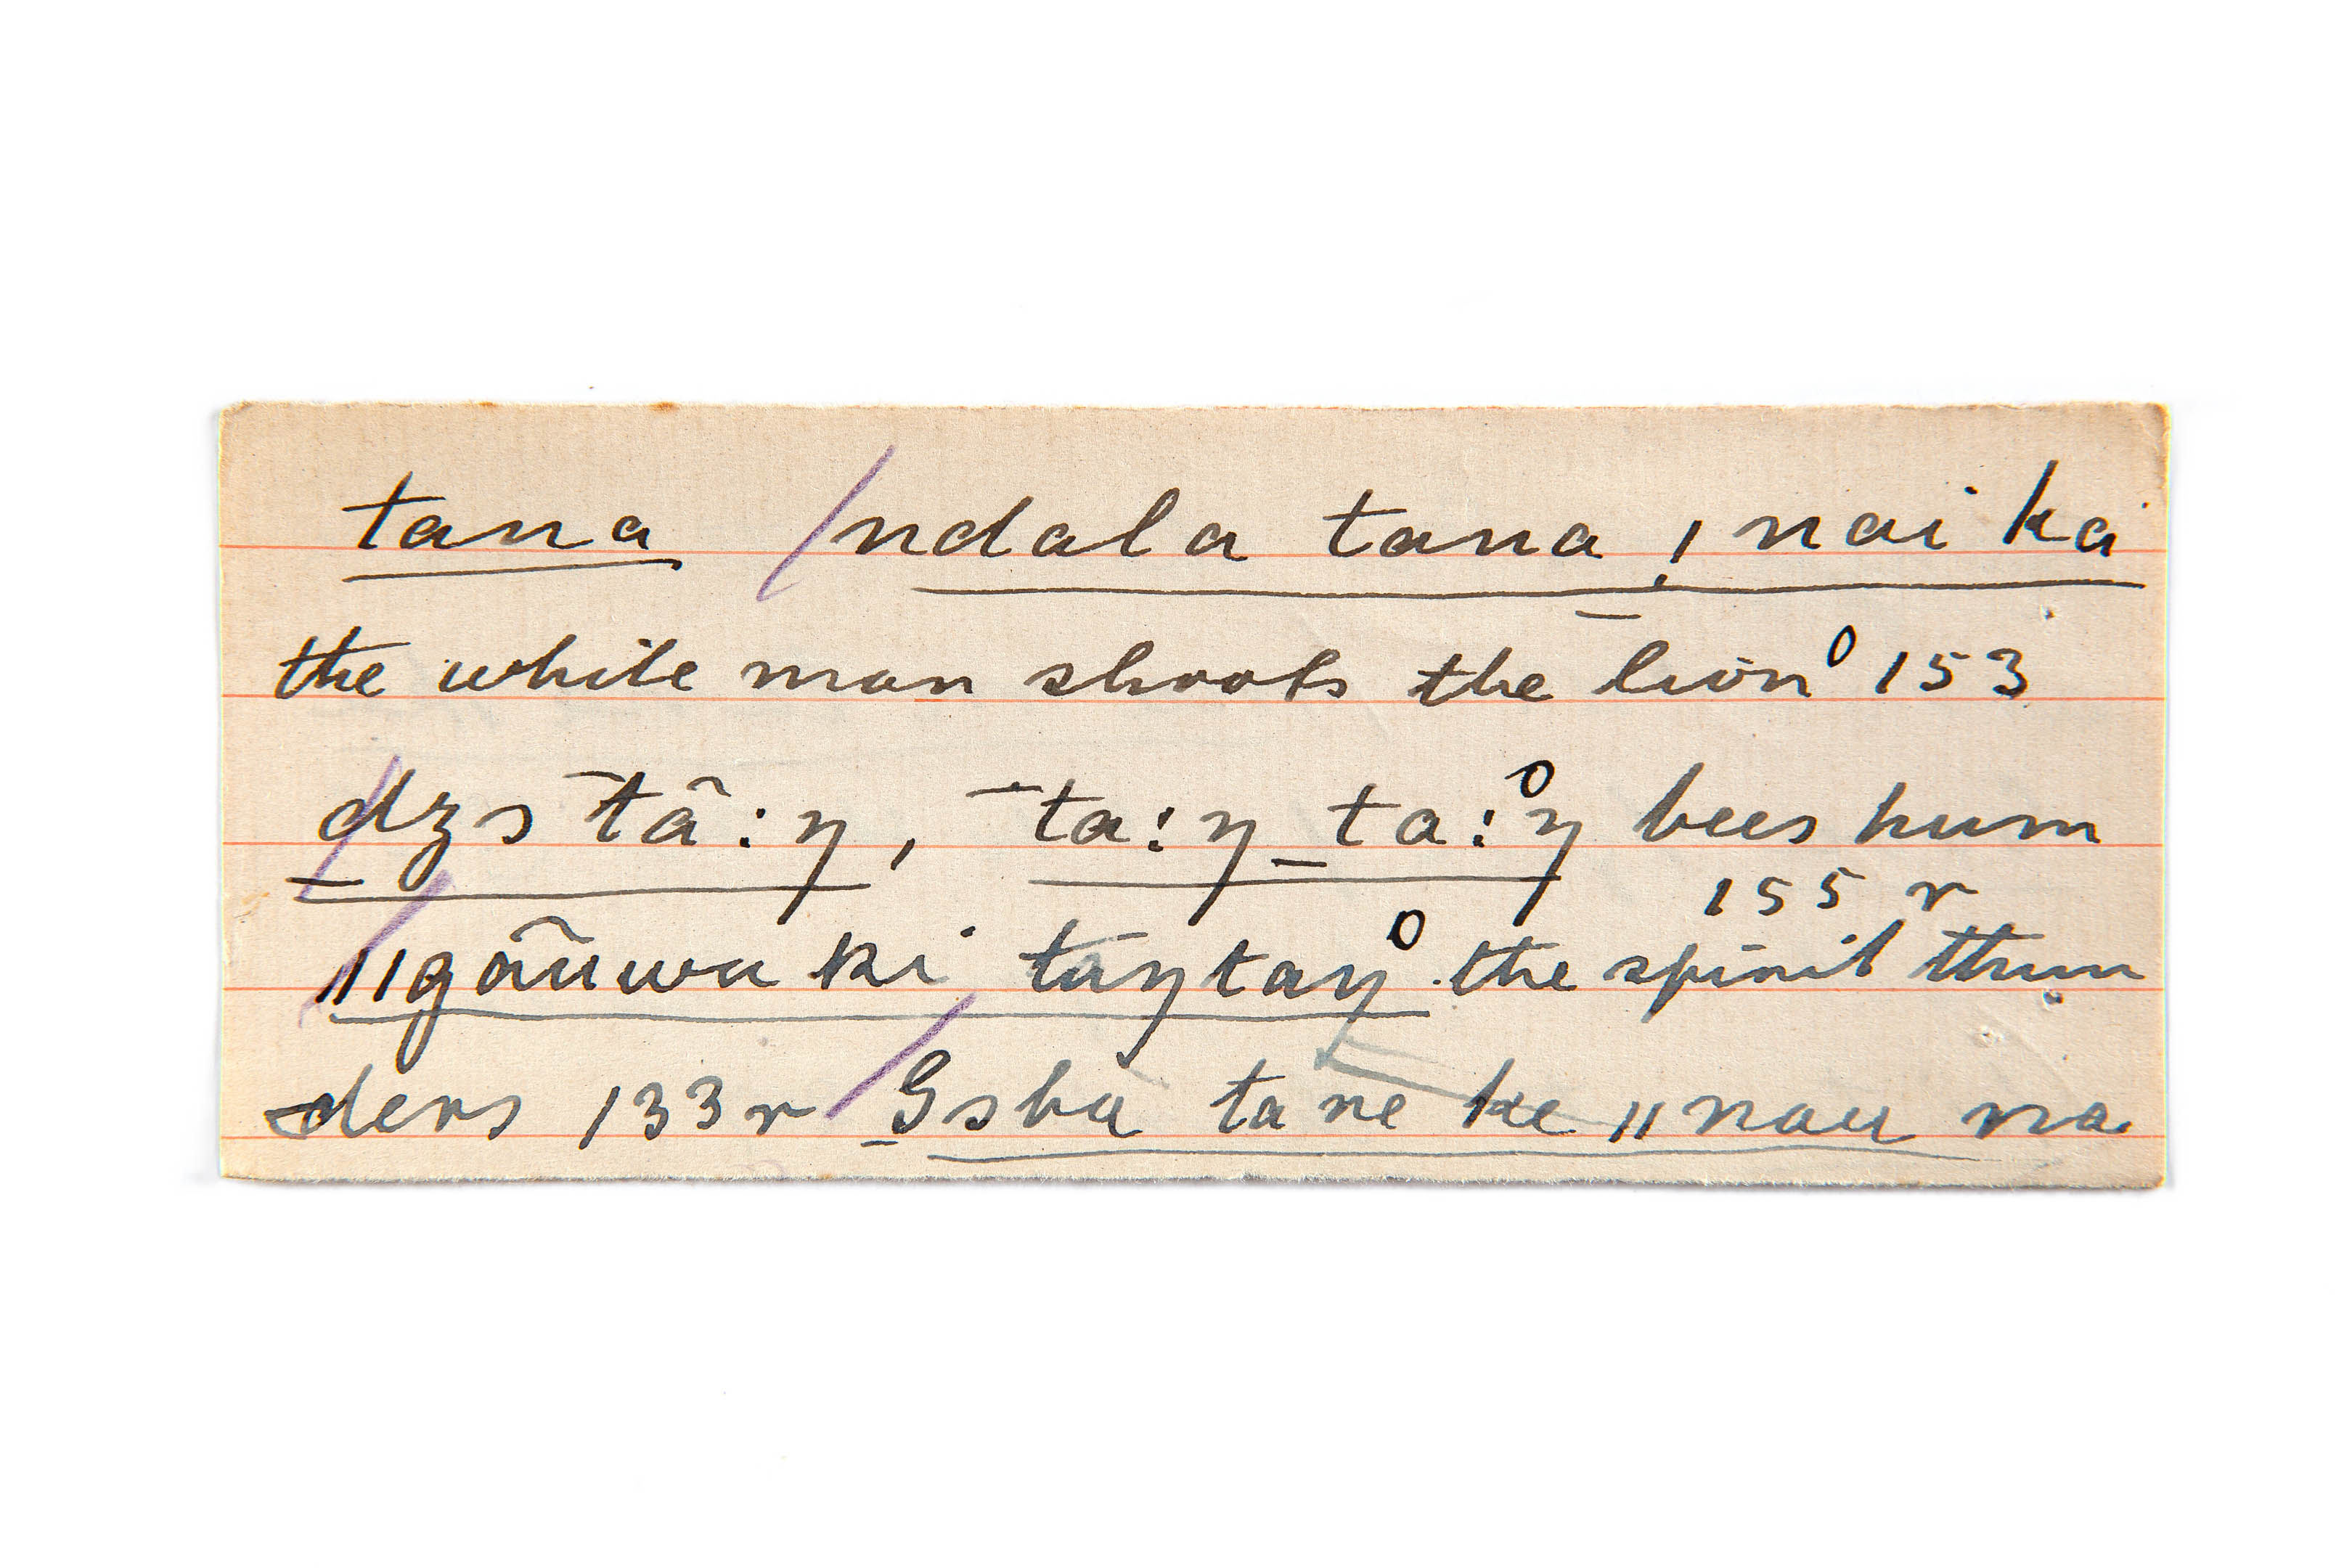 tana /ndala tana ǃnai ka
the white man shoots the lion⁰ 153
dzs ¯tâ:ŋ, ¯ta:ŋ _ta:⁰ŋ bees hum
155 r
ǁgãuwa ki taŋtaŋ⁰ the spirit thun
ders 133r Gsba tane ke ǁnau na